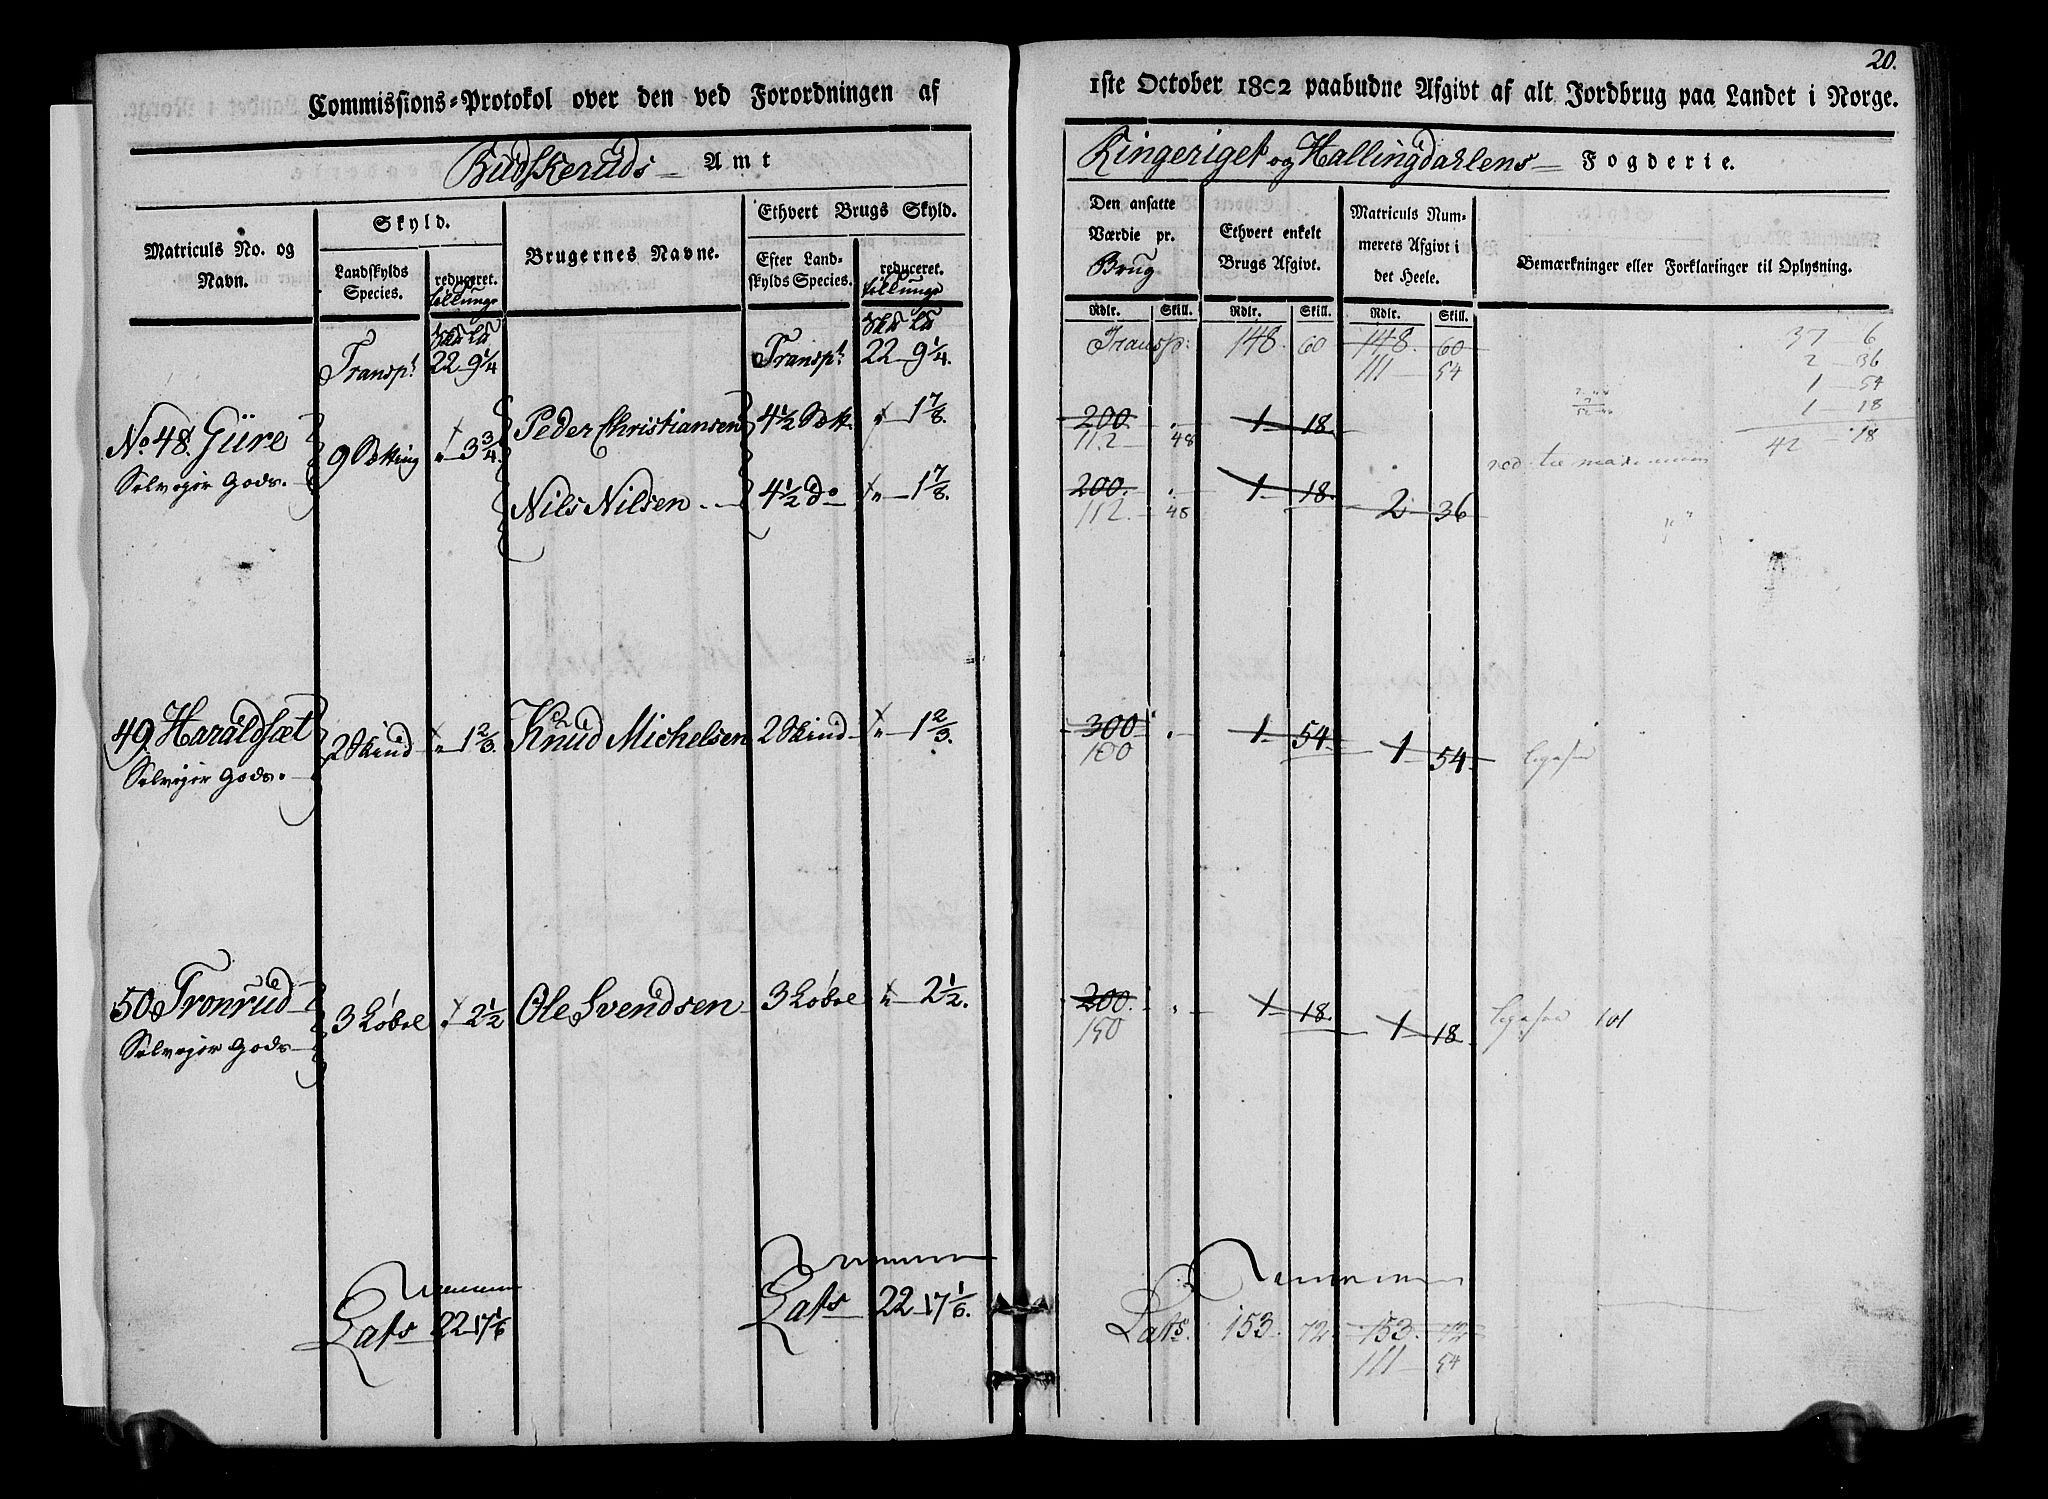 20.
Commissions-Protokol over den ved Forordningen af
1ste October 1802 paabudne Afgivt af alt Jordbrug paa Landet i Norge.
Budskeruds Amt
Ringeriget og Hallingdahlens Fogderie.
Matriculs No. og Navn.
Skyld.
Landskylds Species.
reduceret.
Brugernes Navne.
Ethvert Brugs Skyld.
Efter Landskylds Species.
reduceret.
Den ansatte Værdie pr. Brug
Ethvert enkelt Brugs Afgivt.
Matriculs Nummerets Afgivt i det Heele.
Bemærkninger eller Forklaringer til Oplysning.
Rdlr. Skill. Rdlr. Skill. Rdlr. Skill.
Transpt 22 9 1/4 Transpt 22 9 1/4. Transp: 148 60 148 60
111 54
37 6
2 36
1 54
1 18
42 18
No. 48. Güre 9 Setting 3 3/4 Peder Christiansen 4 1/2 Sett. 1 7/8. 200 1 18
112 48
Selveier Gods.
Nils Nilsen 4 1/2 do 1 7/8. 200 1 18. 2 36
112 48
49. Haraldsæt 2 Skind 1 2/3. Knud Michelsen 2 Skind 1 2/3. 300 1 54 1 54
100
Selveier Gods.
50 Tronrud 3 Løbol 2 1/2 Ole Svendsen 3 Løbol 2 1/2. 200 1 18. 1 18.
150
101
Selveier Gods
Lats 22 17 1/6 Lats 22 17 1/6. Lats. 153 72 153 72
111 54